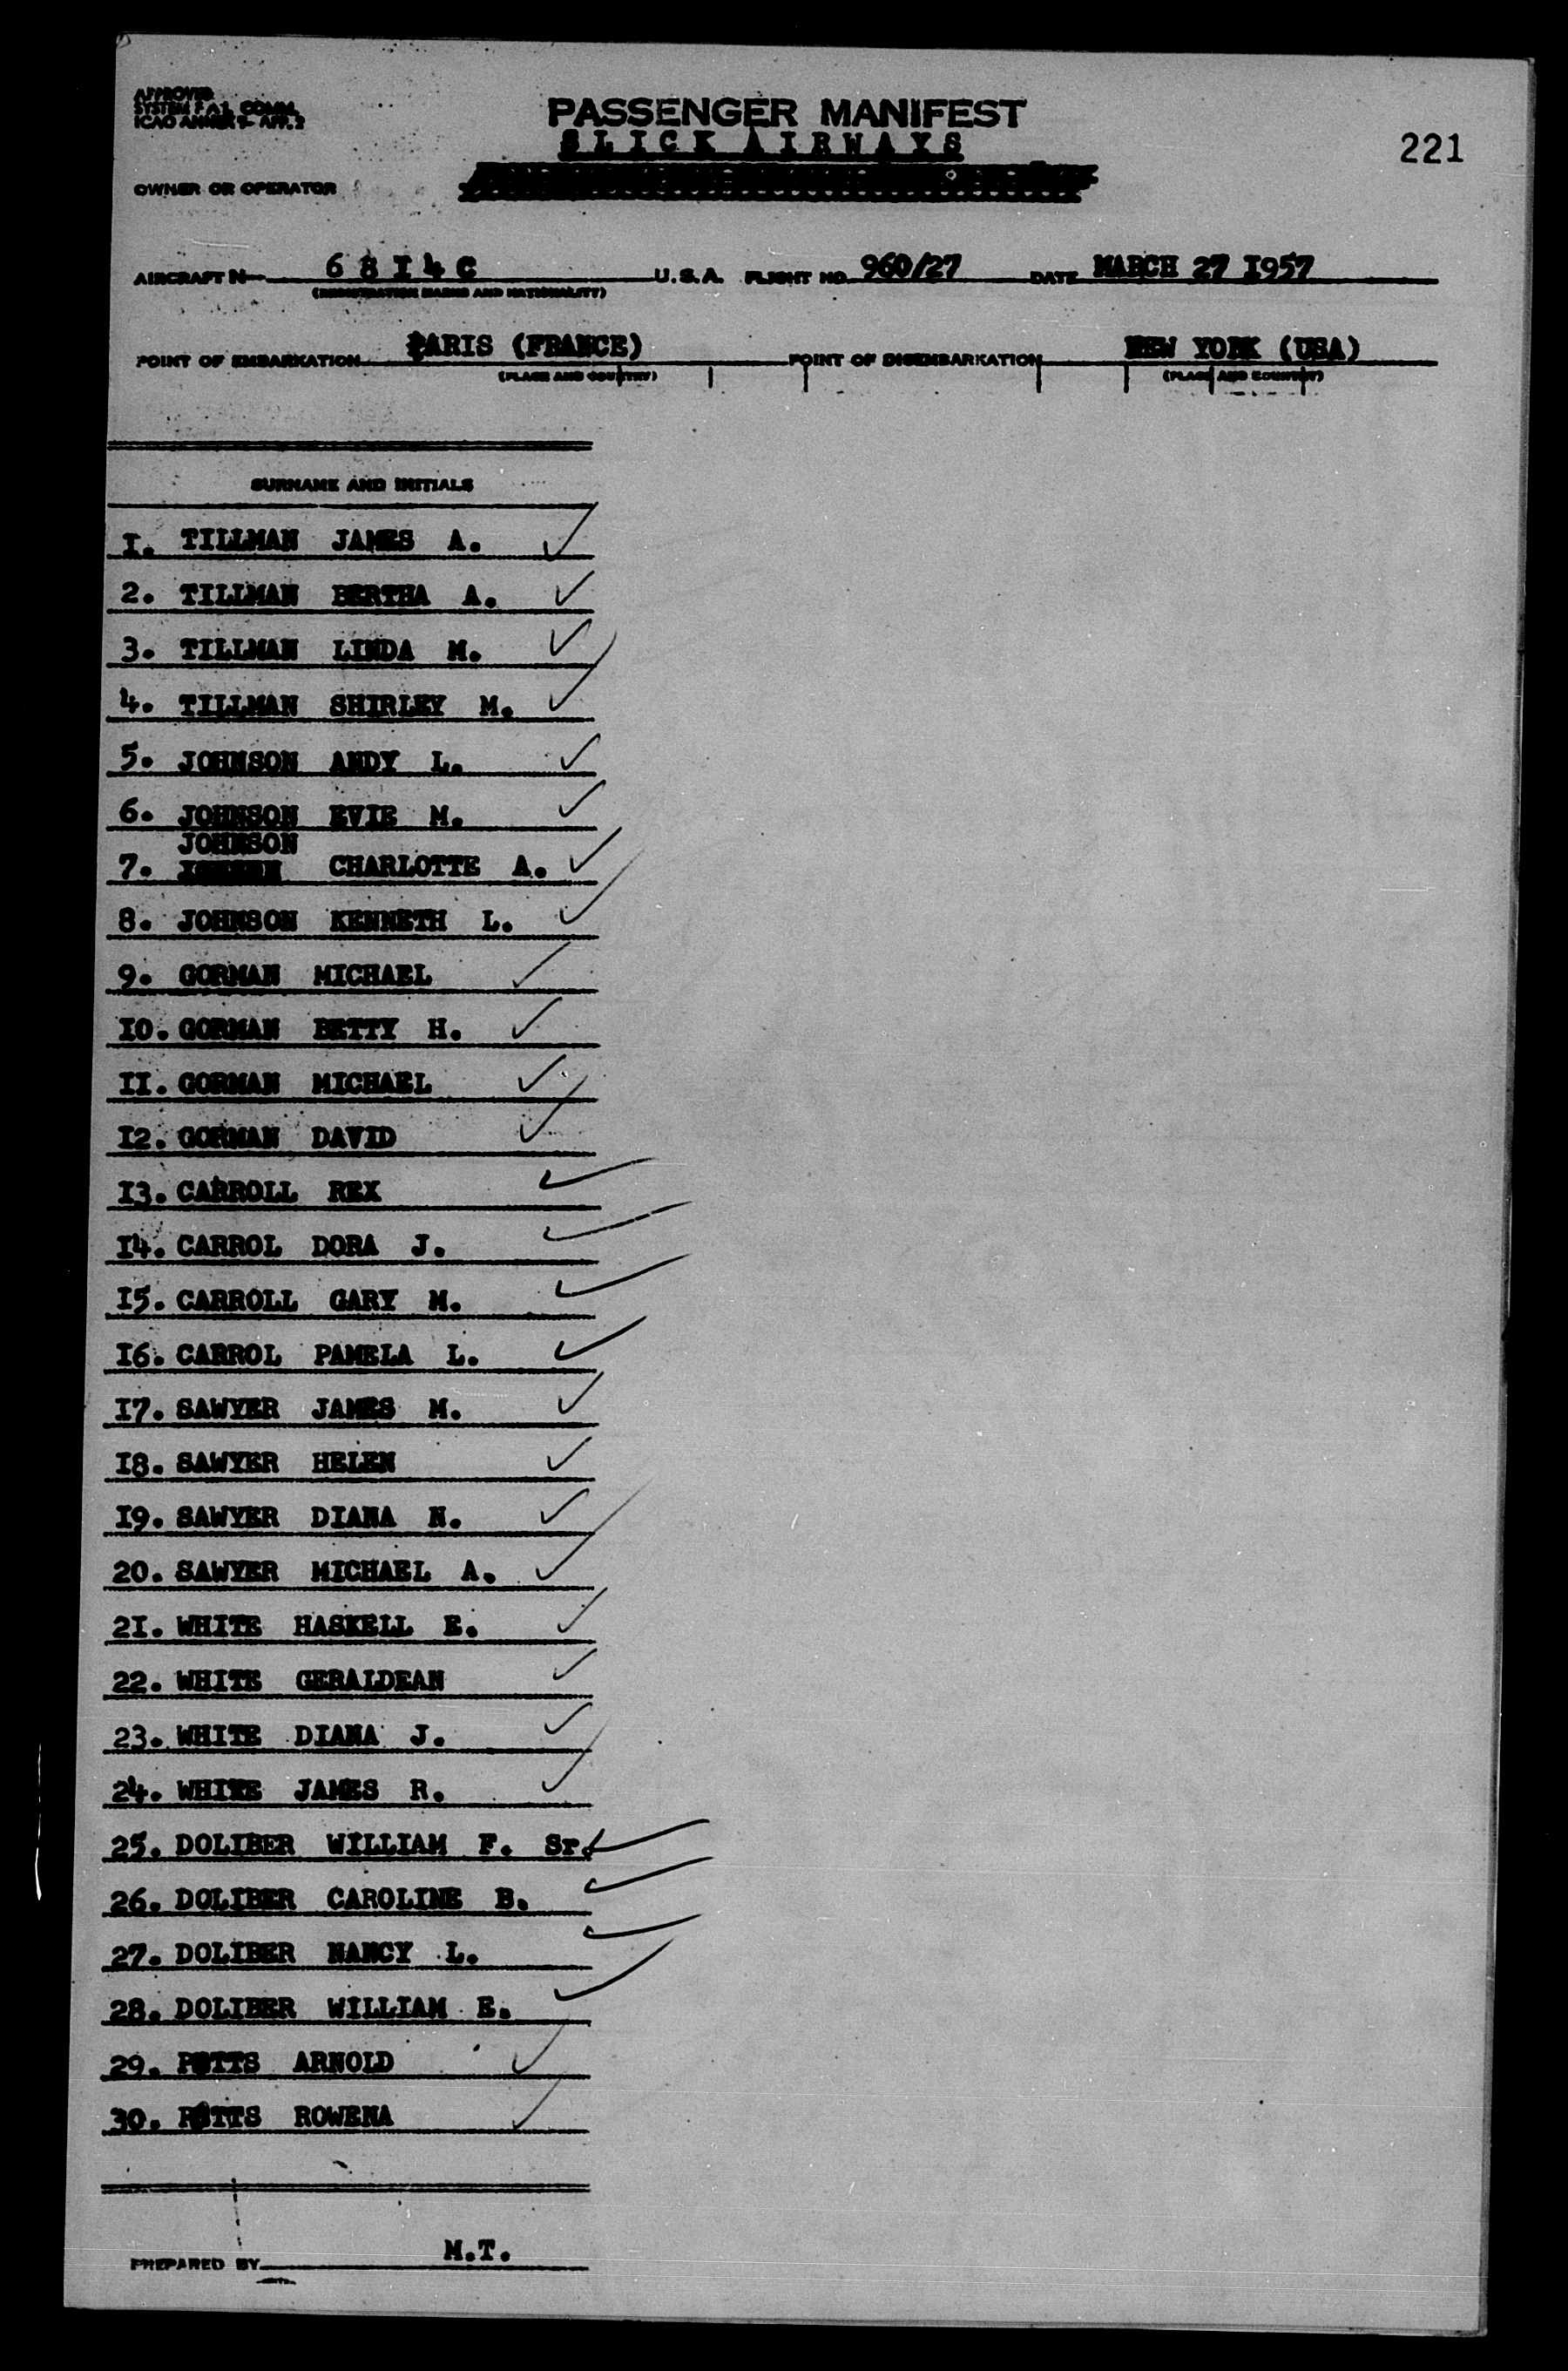 APPROVED
SYSTEM F.A.L. COMM.
ICAO ANNEX 9- APP. 2
PASSENGER MANIFEST
SLICK AIRWAYS
221
OWNER OR OPERATOR
AIRCRAFT N 6 8 I 4 C U.S.A. FLIGHT NO. 960/27 DATE MARCH 27 I957
(REGISTRATION MARKS AND NATIONALITY)
POINT OF EMBARKATION PARIS (FRANCE) POINT OF DISEMBARKATION NEW YORK (USA)
(PLACE AND COUNTRY) (PLACE AND COUNTRY)
SURNAME AND INITIALS
I. TILLMAN JAMES A.
2. TILLMAN BERTHA A.
3. TILLMAN LINDA M.
4. TILLMAN SHIRLEY M.
5. JOHNSON ANDY L.
6. JOHNSON EVIE M.
JOHNSON
7. CHARLOTTE A.
8. JOHNSON KENNETH L.
9. GORMAN MICHAEL
I0. GORMAN BETTY H.
II. GORMAN MICHAEL
I2. GORMAN DAVID
I3. CARROLL REX
I4. CARROL DORA J.
I5. CARROLL GARY M.
I6. CARROL PAMELA L.
I7. SAWYER JAMES M.
I8. SAWYER HELEN
I9. SAWYER DIANA N.
20. SAWYER MICHAEL A.
2I. WHITE HASKELL E.
22. WHITE GERALDEAN
23. WHITE DIANA J.
24. WHITE JAMES R.
25. DOLIBER WILLIAM F. Sr.
26. DOLIBER CAROLINE B.
27. DOLIBER NANCY L.
28. DOLIBER WILLIAM E.
29. POTTS ARNOLD
30. POTTS ROWENA
PREPARED BY M.T.